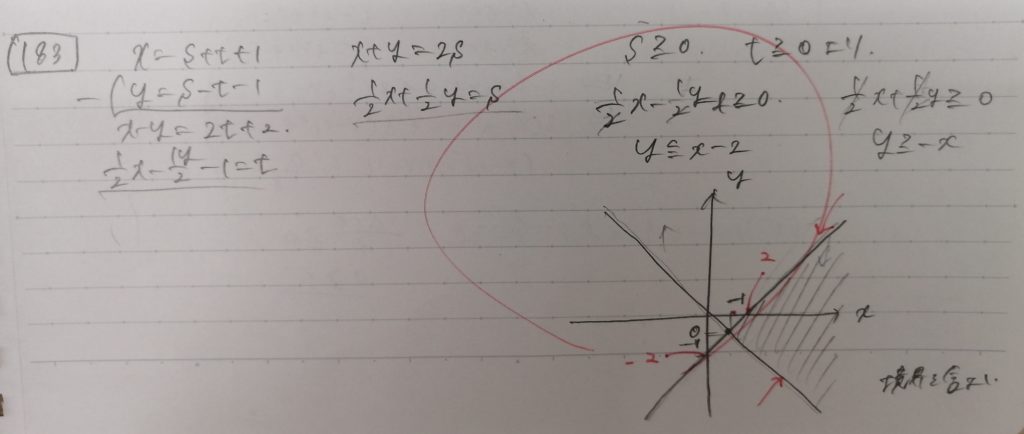 183
x = s+t+1
y = s-t-1
x-y = 2t+2.
1/2x - 1/2y - 1 = t
x+y = 2s
1/2x + 1/2y = s
s≧0. t≧0 より.
1/2x - 1/2y - 1 ≧ 0.
y ≦ x-2
1/2x + 1/2y ≧ 0
y ≧ -x
y
2
1
x
0
-1
-2
境界を含む.